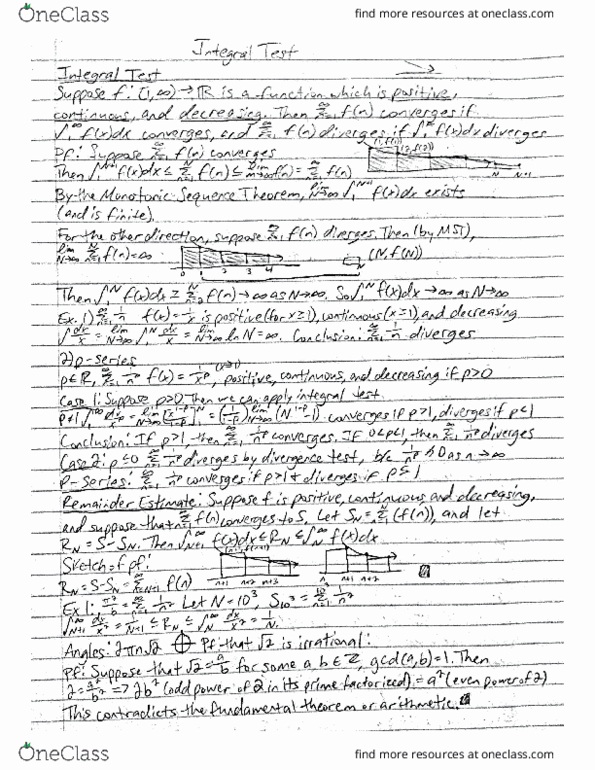 OneClass
find more resources at oneclass.com
Integral Test
Integral Test
Suppose f: (1, ∞) → ℝ is a function which is positive,
continuous, and decreasing. Then Σ_{n=1}^∞ f(n) converges if
∫_1^∞ f(x)dx converges, and Σ_{n=1}^∞ f(n) diverges if ∫_1^∞ f(x)dx diverges
Pf: Suppose Σ_{n=1}^∞ f(n) converges
(1, f(1))
(2, f(2))
Then ∫_1^{N+1} f(x)dx ≤ Σ_{n=1}^N f(n) ≤ lim_{m→∞} f(n) = Σ_{n=1}^∞ f(n)
N N+1
By the Monotonic Sequence Theorem, lim_{N→∞} ∫_1^{N+1} f(x)dx exists
(and is finite).
For the other direction, suppose Σ_{n=1}^∞ f(n) diverges. Then (by MST),
lim_{N→∞} Σ_{n=1}^N f(n) = ∞
0 1 2 3 4
N
(N, f(N))
Then ∫_1^N f(x)dx ≥ Σ_{n=2}^N f(n) → ∞ as N→∞. So ∫_1^N f(x)dx → ∞ as N→∞
Ex. 1) Σ_{n=1}^∞ 1/n f(x) = 1/x is positive (for x≥1), continuous (x≥1), and decreasing
∫_1^∞ dx/x = lim_{N→∞} ∫_1^N dx/x = lim_{N→∞} ln N = ∞. Conclusion: Σ_{n=1}^∞ 1/n diverges
2) p-series
p∈ℝ, Σ_{n=1}^∞ 1/n^p f(x) = 1/x^p, (x≥1) positive, continuous, and decreasing if p>0
Case 1: Suppose p>0, Then we can apply integral test.
p≠1 ∫_1^∞ dx/x^p = lim_{N→∞} [x^{1-p}/(1-p)]_1^N = (1/(1-p)) lim_{N→∞} (N^{1-p} - 1) converges if p>1, diverges if p≤1
Conclusion: If p>1 then Σ_{n=1}^∞ 1/n^p converges. If 0<p≤1, then Σ_{n=1}^∞ 1/n^p diverges
Case 2: p≤0 Σ_{n=1}^∞ 1/n^p diverges by divergence test, b/c 1/n^p ↛ 0 as n→∞
P-Series: Σ_{n=1}^∞ 1/n^p converges if p>1 & diverges if p≤1
Remainder Estimate: Suppose f is positive, continuous and decreasing,
and suppose that Σ_{n=1}^∞ f(n) converges to S. Let S_N = Σ_{n=1}^N (f(n)), and let
R_N = S - S_N. Then ∫_{N+1}^∞ f(x)dx ≤ R_N ≤ ∫_N^∞ f(x)dx
Sketch of pf:
n+1 n+2 n+3
n n+1 n+2
R_N = S - S_N = Σ_{n=N+1}^∞ f(n)
Ex 1: π²/6 = Σ_{n=1}^∞ 1/n² Let N=10³, S_{10³} = Σ_{n=1}^{10³} 1/n²
∫_{N+1}^∞ dx/x² = 1/(N+1) ≤ R_N ≤ ∫_N^∞ dx/x² = 1/N.
Angles: 2πn√2 Pf that √2 is irrational:
Pf: Suppose that √2 = a/b for some a b ∈ ℤ, gcd(a,b)=1. Then
2 = a²/b² => 2b² (odd power of 2 in its prime factorized) = a² (even power of 2)
This contradicts the fundamental theorem or arithmetic.
OneClass
find more resources at oneclass.com